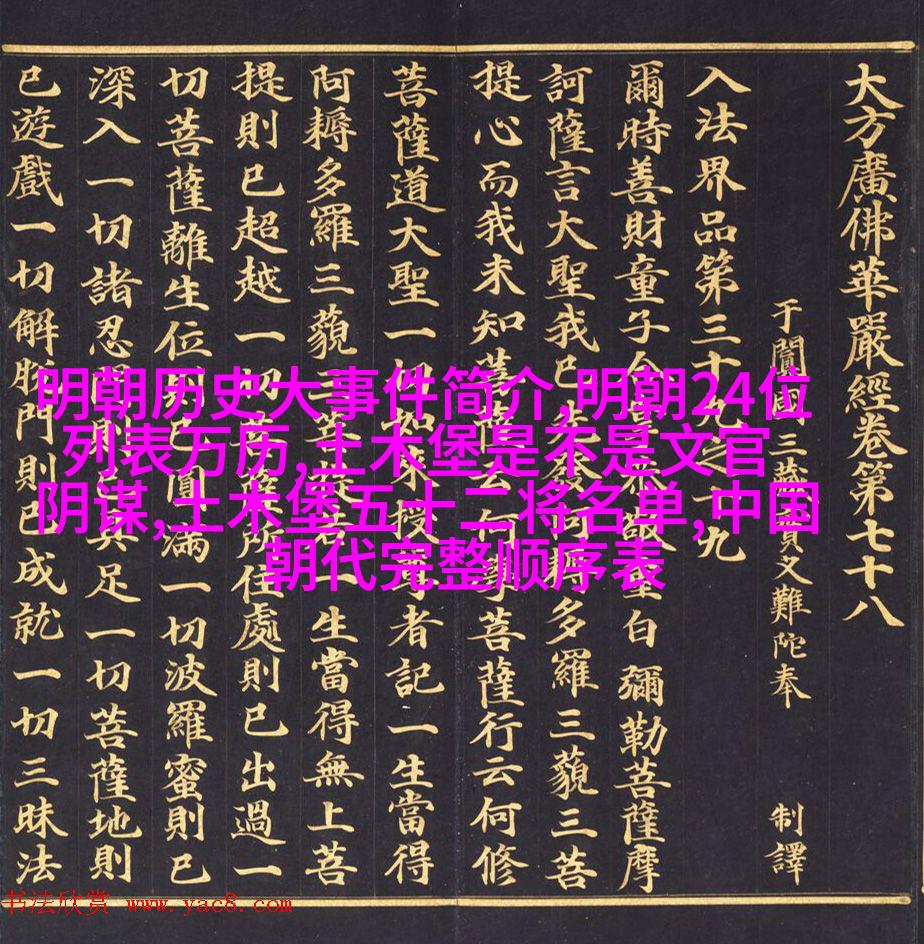 大方廣佛華嚴經卷第七十八
于闐國三藏實叉難陀奉 制譯
入法界品第三十九之十九
爾時善財童子合掌恭敬重白彌勒菩薩摩
訶薩言大聖我已先發阿耨多羅三藐三菩
提心而我未知菩薩云何學菩薩行云何修
菩薩道大聖一切如來授尊者記一生當得
阿耨多羅三藐三菩提若一生當得無上菩
提則已超越一切菩薩所住處則已出過一
切菩薩離生位則已圓滿一切波羅蜜則已
深入一切諸忍門則已具足一切菩薩地則
已遊戲一切解脫門則已成就一切三昧法
明朝历史大事件简介,明朝24位
列表万历,土木堡是不是文官
阴谋,土木堡五十二将名单,中国
朝代完整顺序表
书法欣赏 www.yac8.com